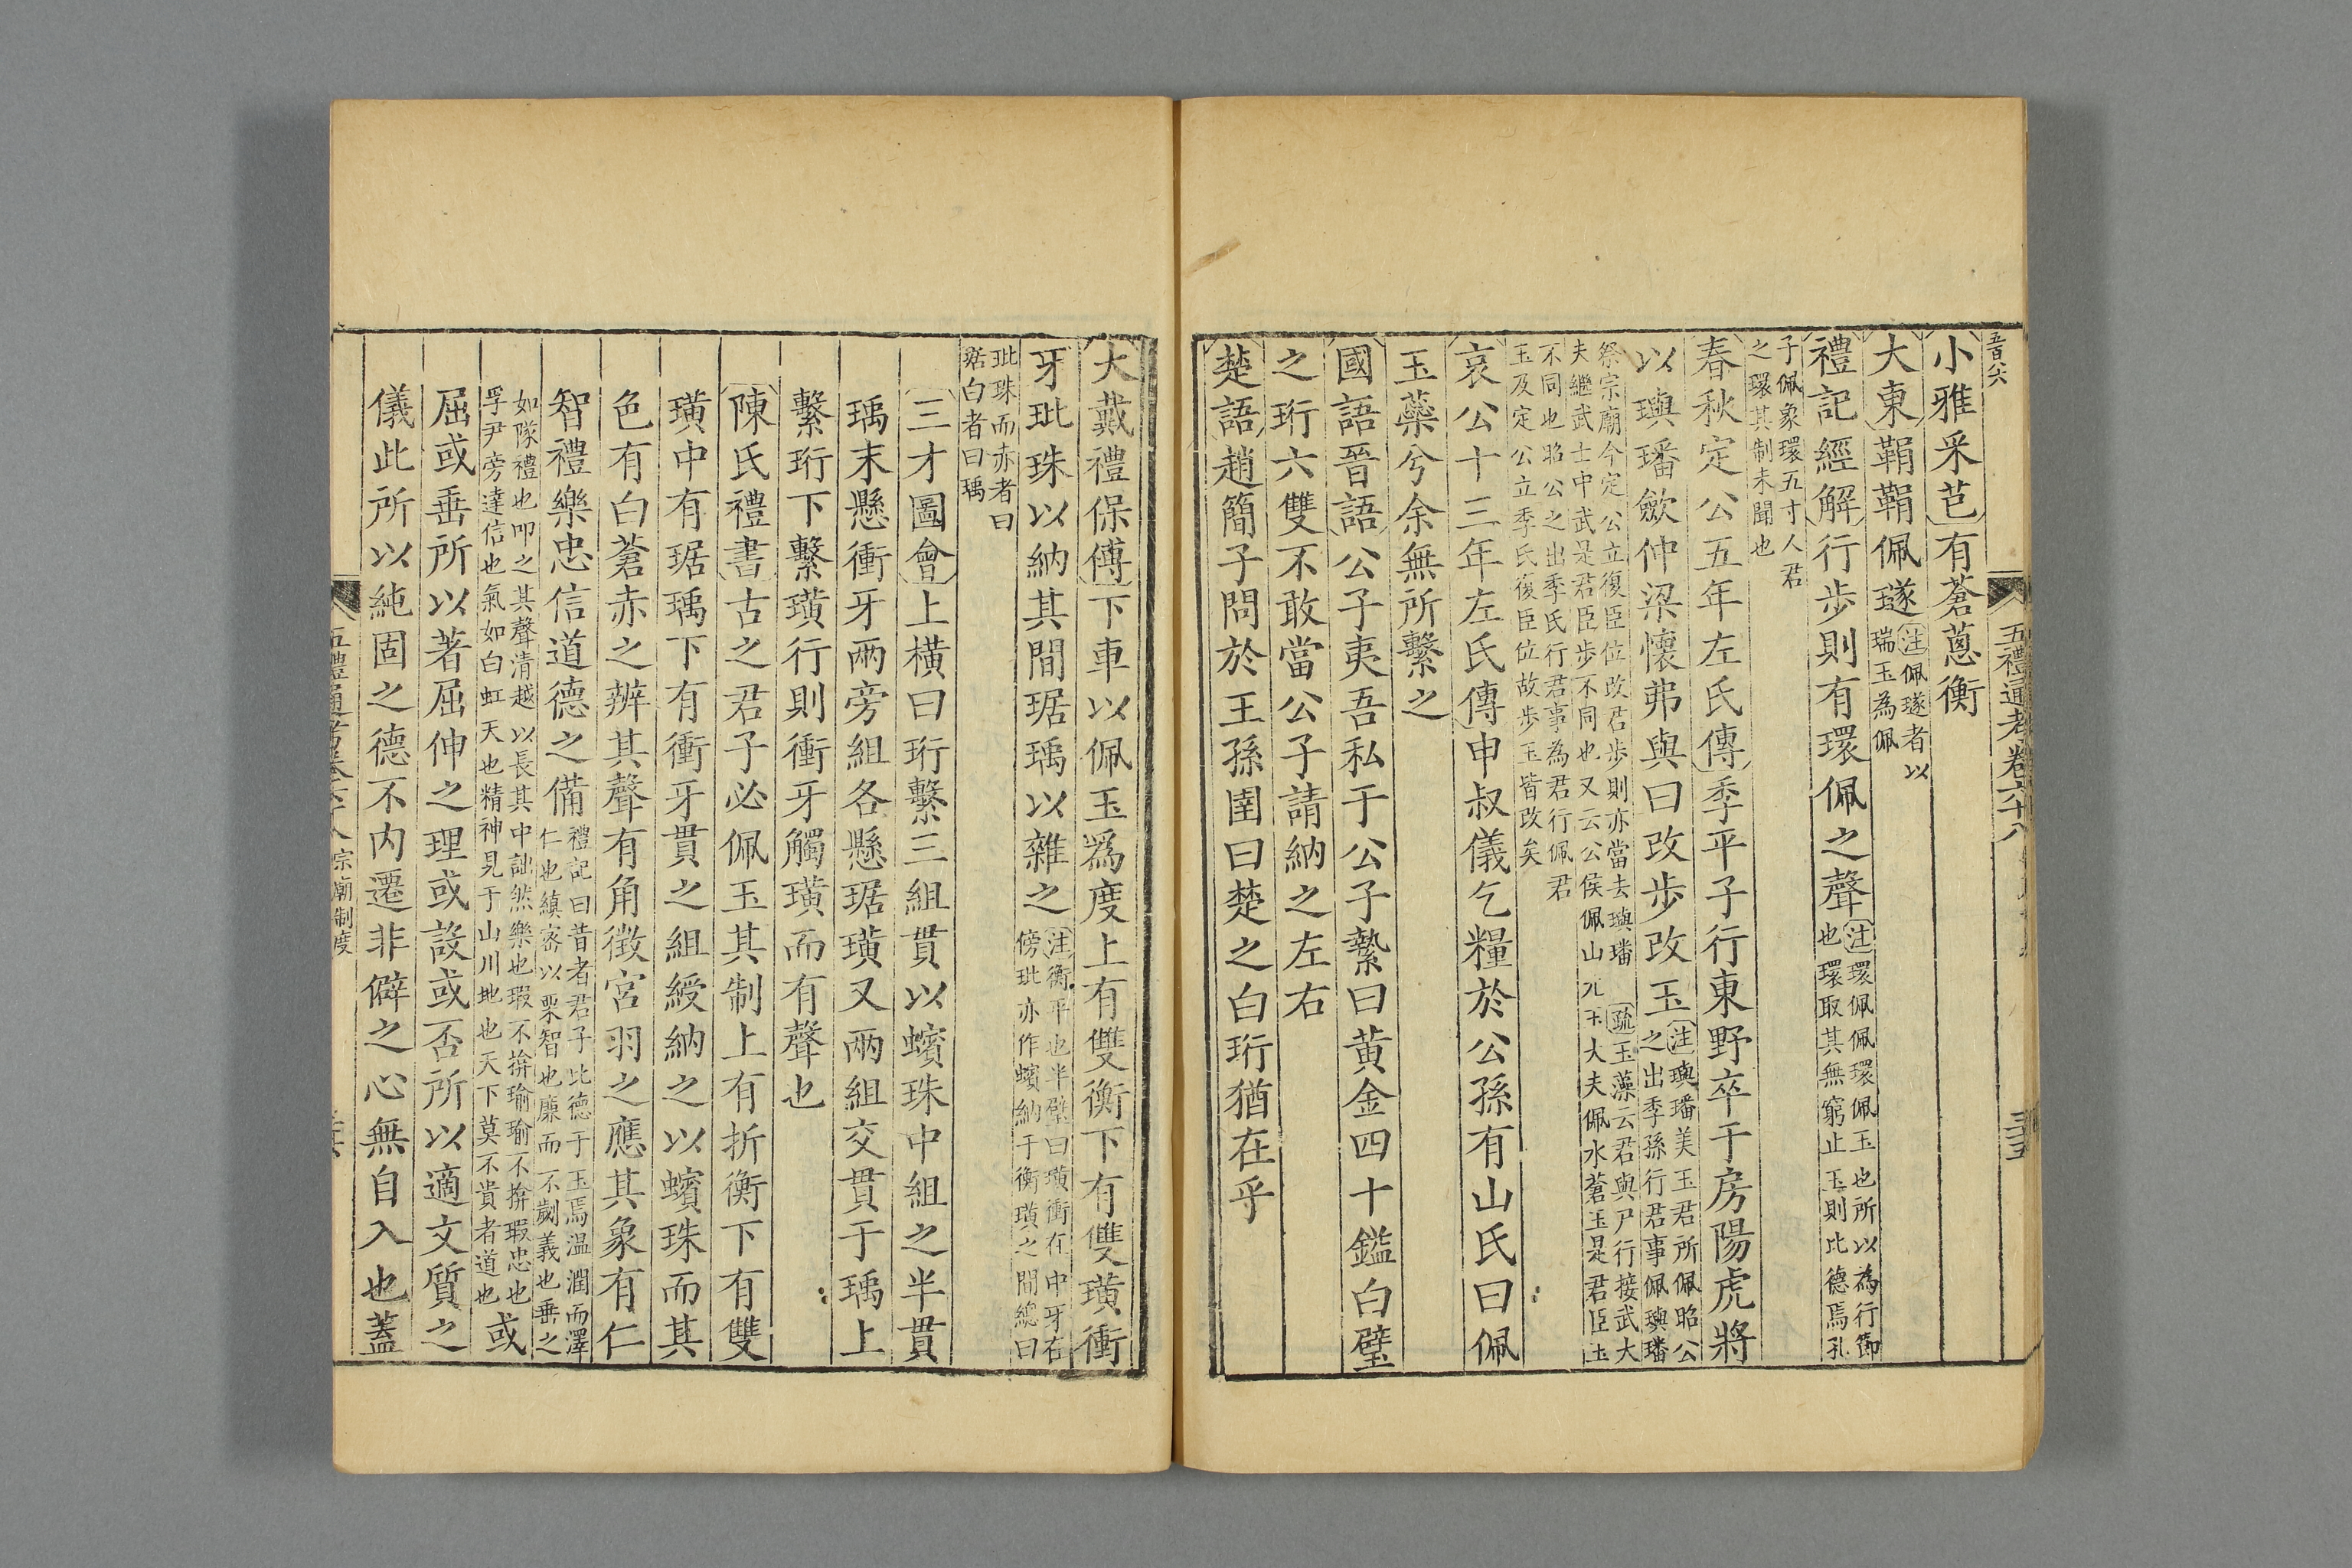 五百八六
五禮通考卷六十八
三十五
小雅采芑有蒼蔥衡
大東鞙鞙佩璲注佩璲者以
瑞玉為佩
禮記經解行步則有環佩之聲注環佩佩環佩玉也所以為行節
也環取其無窮止玉則比德焉孔
子佩象環五寸人君
之環其制未聞也
春秋定公五年左氏傳季平子行東野卒于房陽虎將
以璵璠斂仲梁懷弗與曰改步改玉注璵璠美玉君所佩昭公
之出季孫行君事佩璵璠
祭宗廟今定公立復臣位改君步則亦當去璵璠 疏玉藻云君與尸行接武大
夫繼武士中武是君臣步不同也又云公侯佩山 大夫佩水蒼玉是君臣玉
不同也昭公之出季氏行君事為君行佩君
玉及定公立季氏復臣位故步玉皆改矣
哀公十三年左氏傳申叔儀乞糧於公孫有山氏曰佩
玉蘂兮余無所繫之
國語晉語公子夷吾私于公子縶曰黃金四十鎰白璧
之珩六雙不敢當公子請納之左右
楚語趙簡子問於王孫圉曰楚之白珩猶在乎
大戴禮保傅下車以佩玉爲度上有雙衡下有雙璜衝
牙玭珠以納其間琚瑀以雜之注衡平也半璧曰璜衝在中牙在
傍玭亦作蠙納于衡璜之間總曰
玭珠而赤者曰
琚白者曰瑀
三才圖會上橫曰珩繫三組貫以蠙珠中組之半貫
瑀末懸衝牙兩旁組各懸琚璜又兩組交貫于瑀上
繫珩下繫璜行則衝牙觸璜而有聲也
陳氏禮書古之君子必佩玉其制上有折衡下有雙
璜中有琚瑀下有衝牙貫之組綬納之以蠙珠而其
色有白蒼赤之辨其聲有角徵宮羽之應其象有仁
智禮樂忠信道德之備禮記曰昔者君子比德于玉焉溫潤而澤
仁也縝密以栗智也廉而不劌義也垂之
如隊禮也叩之其聲清越以長其中詘然樂也瑕不揜瑜瑜不揜瑕忠也
孚尹旁達信也氣如白虹天也精神見于山川地也天下莫不貴者道也或
屈或垂所以著屈伸之理或設或否所以適文質之
儀此所以純固之德不內遷非僻之心無自入也蓋
五禮通考卷六十八宗廟制度